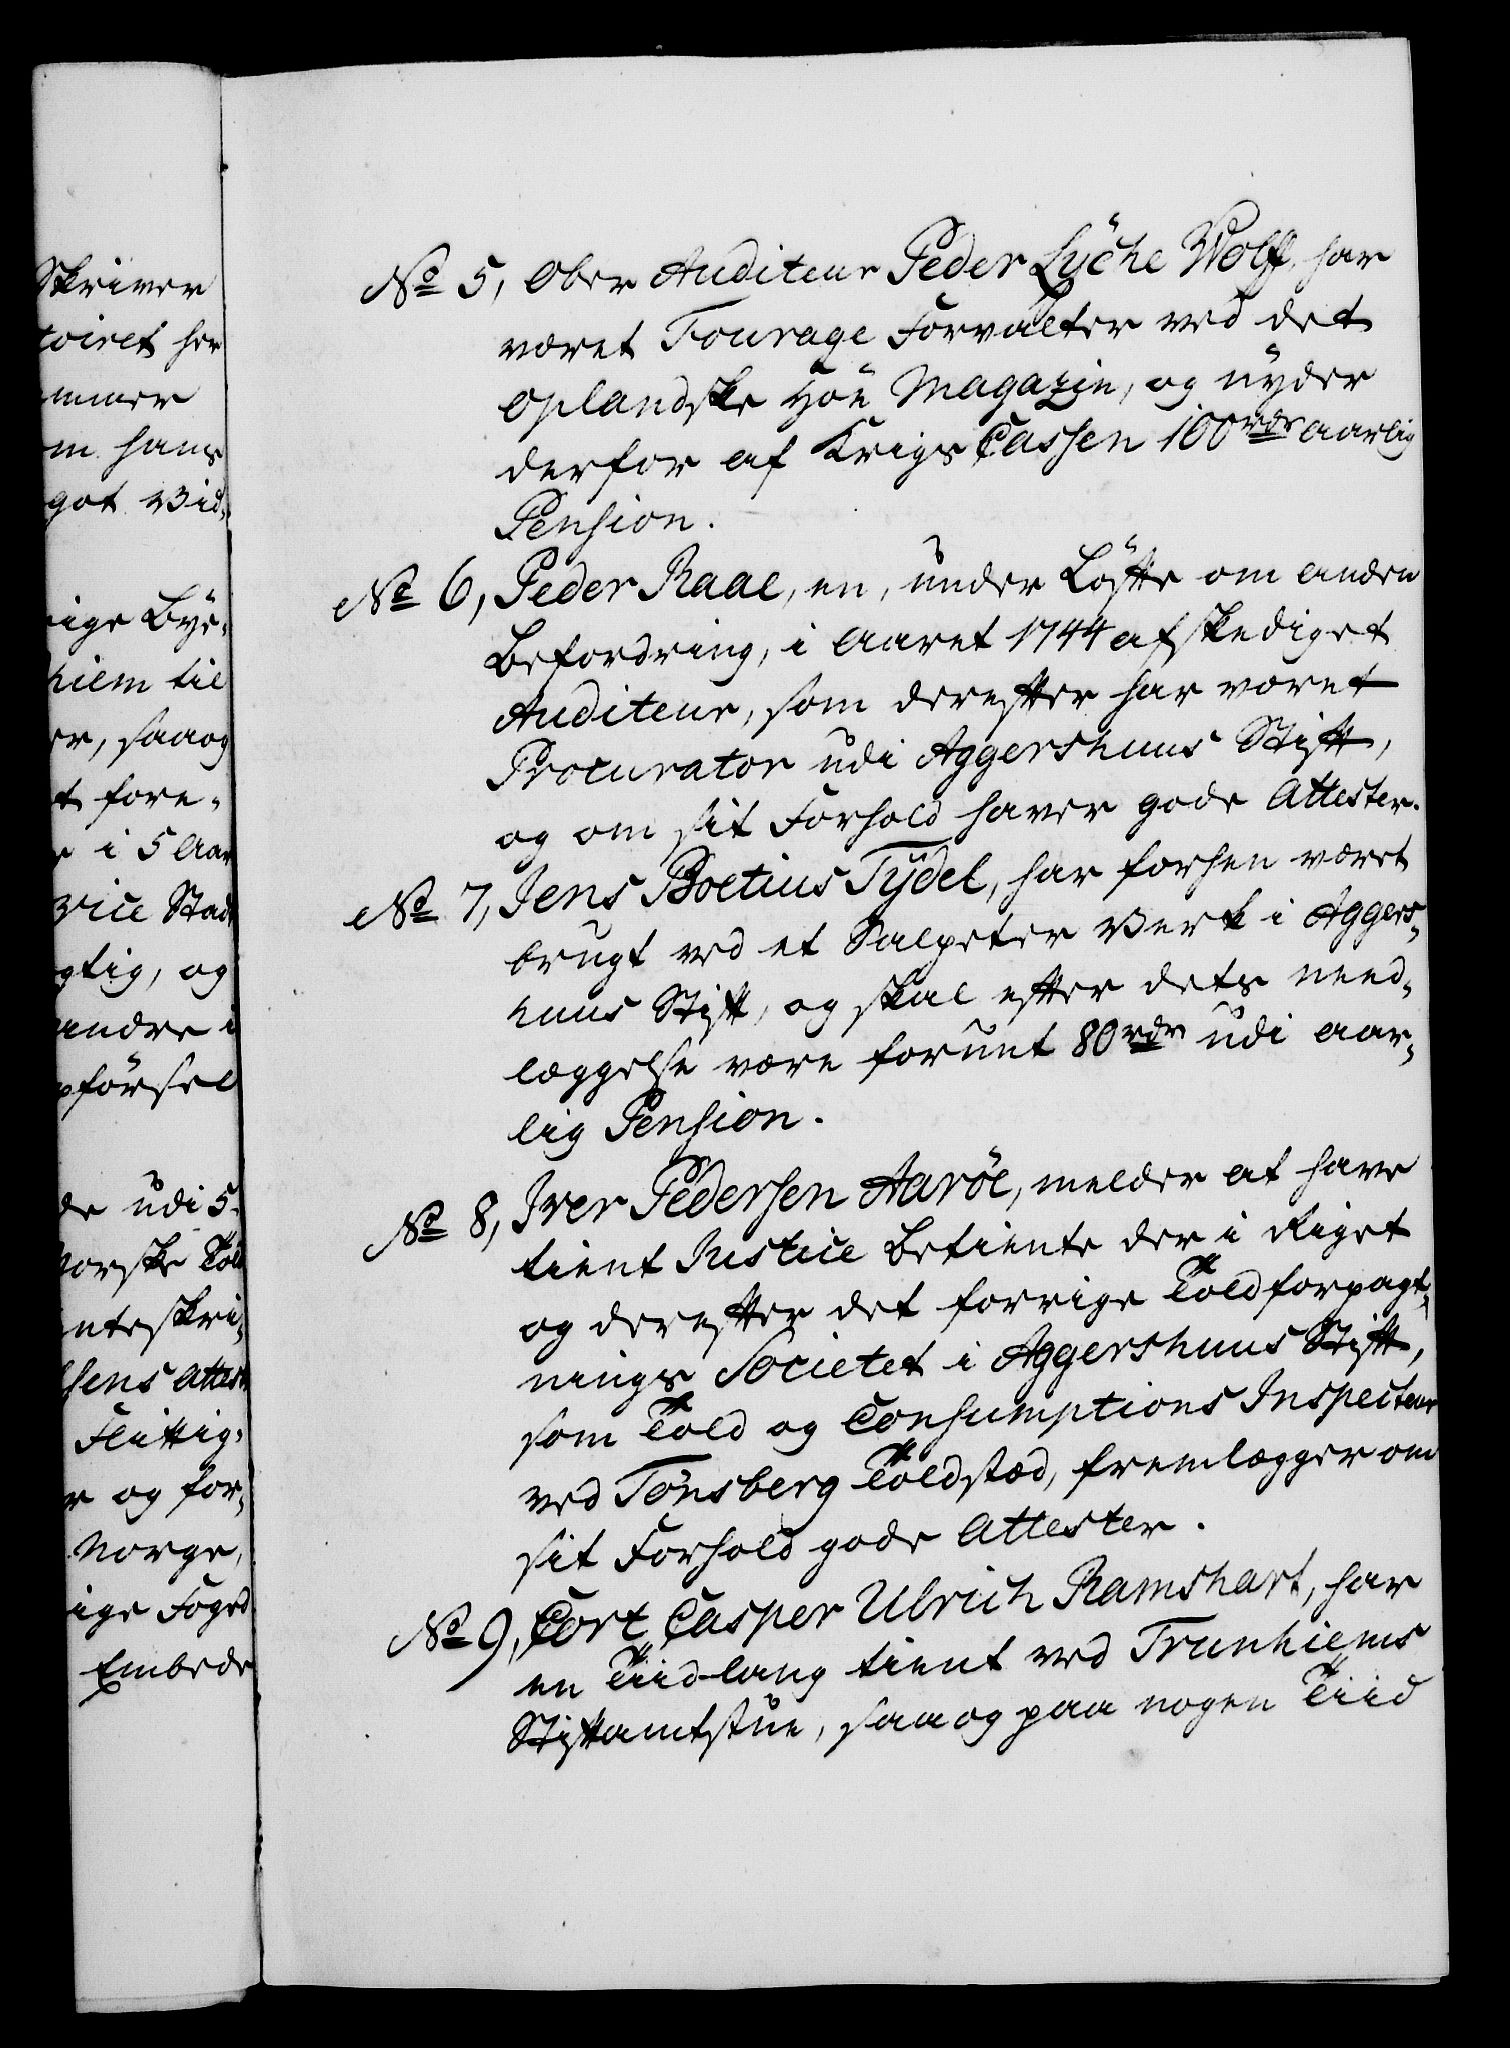 Skriver
toiret her
mmer
m hans
got Bid-
rige Bye-
hiem til
er, saaog
t fore-
e i 5 Aar
vice Stad
gtig, og
andre i
pförsel
de udi 5
Norske Told
nteskri-
sens Attest
Flittig-
r og for-
Norge,
ige Foged
Embede
No 5, Ober Auditeur Peder Lÿche Wolff, har
været Fourage Forvalter ved det
Oplandske Höe Magazin, og nÿder
derfor af Krigs Cassen 100 rdr aarlig
Pension.
No 6, Peder Raae, en, under Löfte om anden
Befordring, i Aaret 1744 afskediget
Auditeur, som derefter har været
Procurator udi Aggershuus Stift,
og om sit Forhold haver gode Attester.
No 7, Jens Boetius Tÿdel, har forhen været
brugt ved et Salpeter Verk i Aggers-
huus Stift, og skal efter dets need-
læggelse være forunt 80 rdr udi aar-
lig Pension.
No 8, Iver Pedersen Aaröe, melder at have
tient Justice Betiente der i Riget
og derefter det forrige Toldforpagt-
nings Societet i Aggershuus Stift,
som Told og Consumptions Inspecteur
ved Tönsberg Toldstæd, fremlægger om
sit Forhold gode Attester.
No 9, Cort Casper Ulrich Ramshart, har
en Tiid lang tient ved Trunhiems
Stiftamtstue, saaog paa nogen Tiid